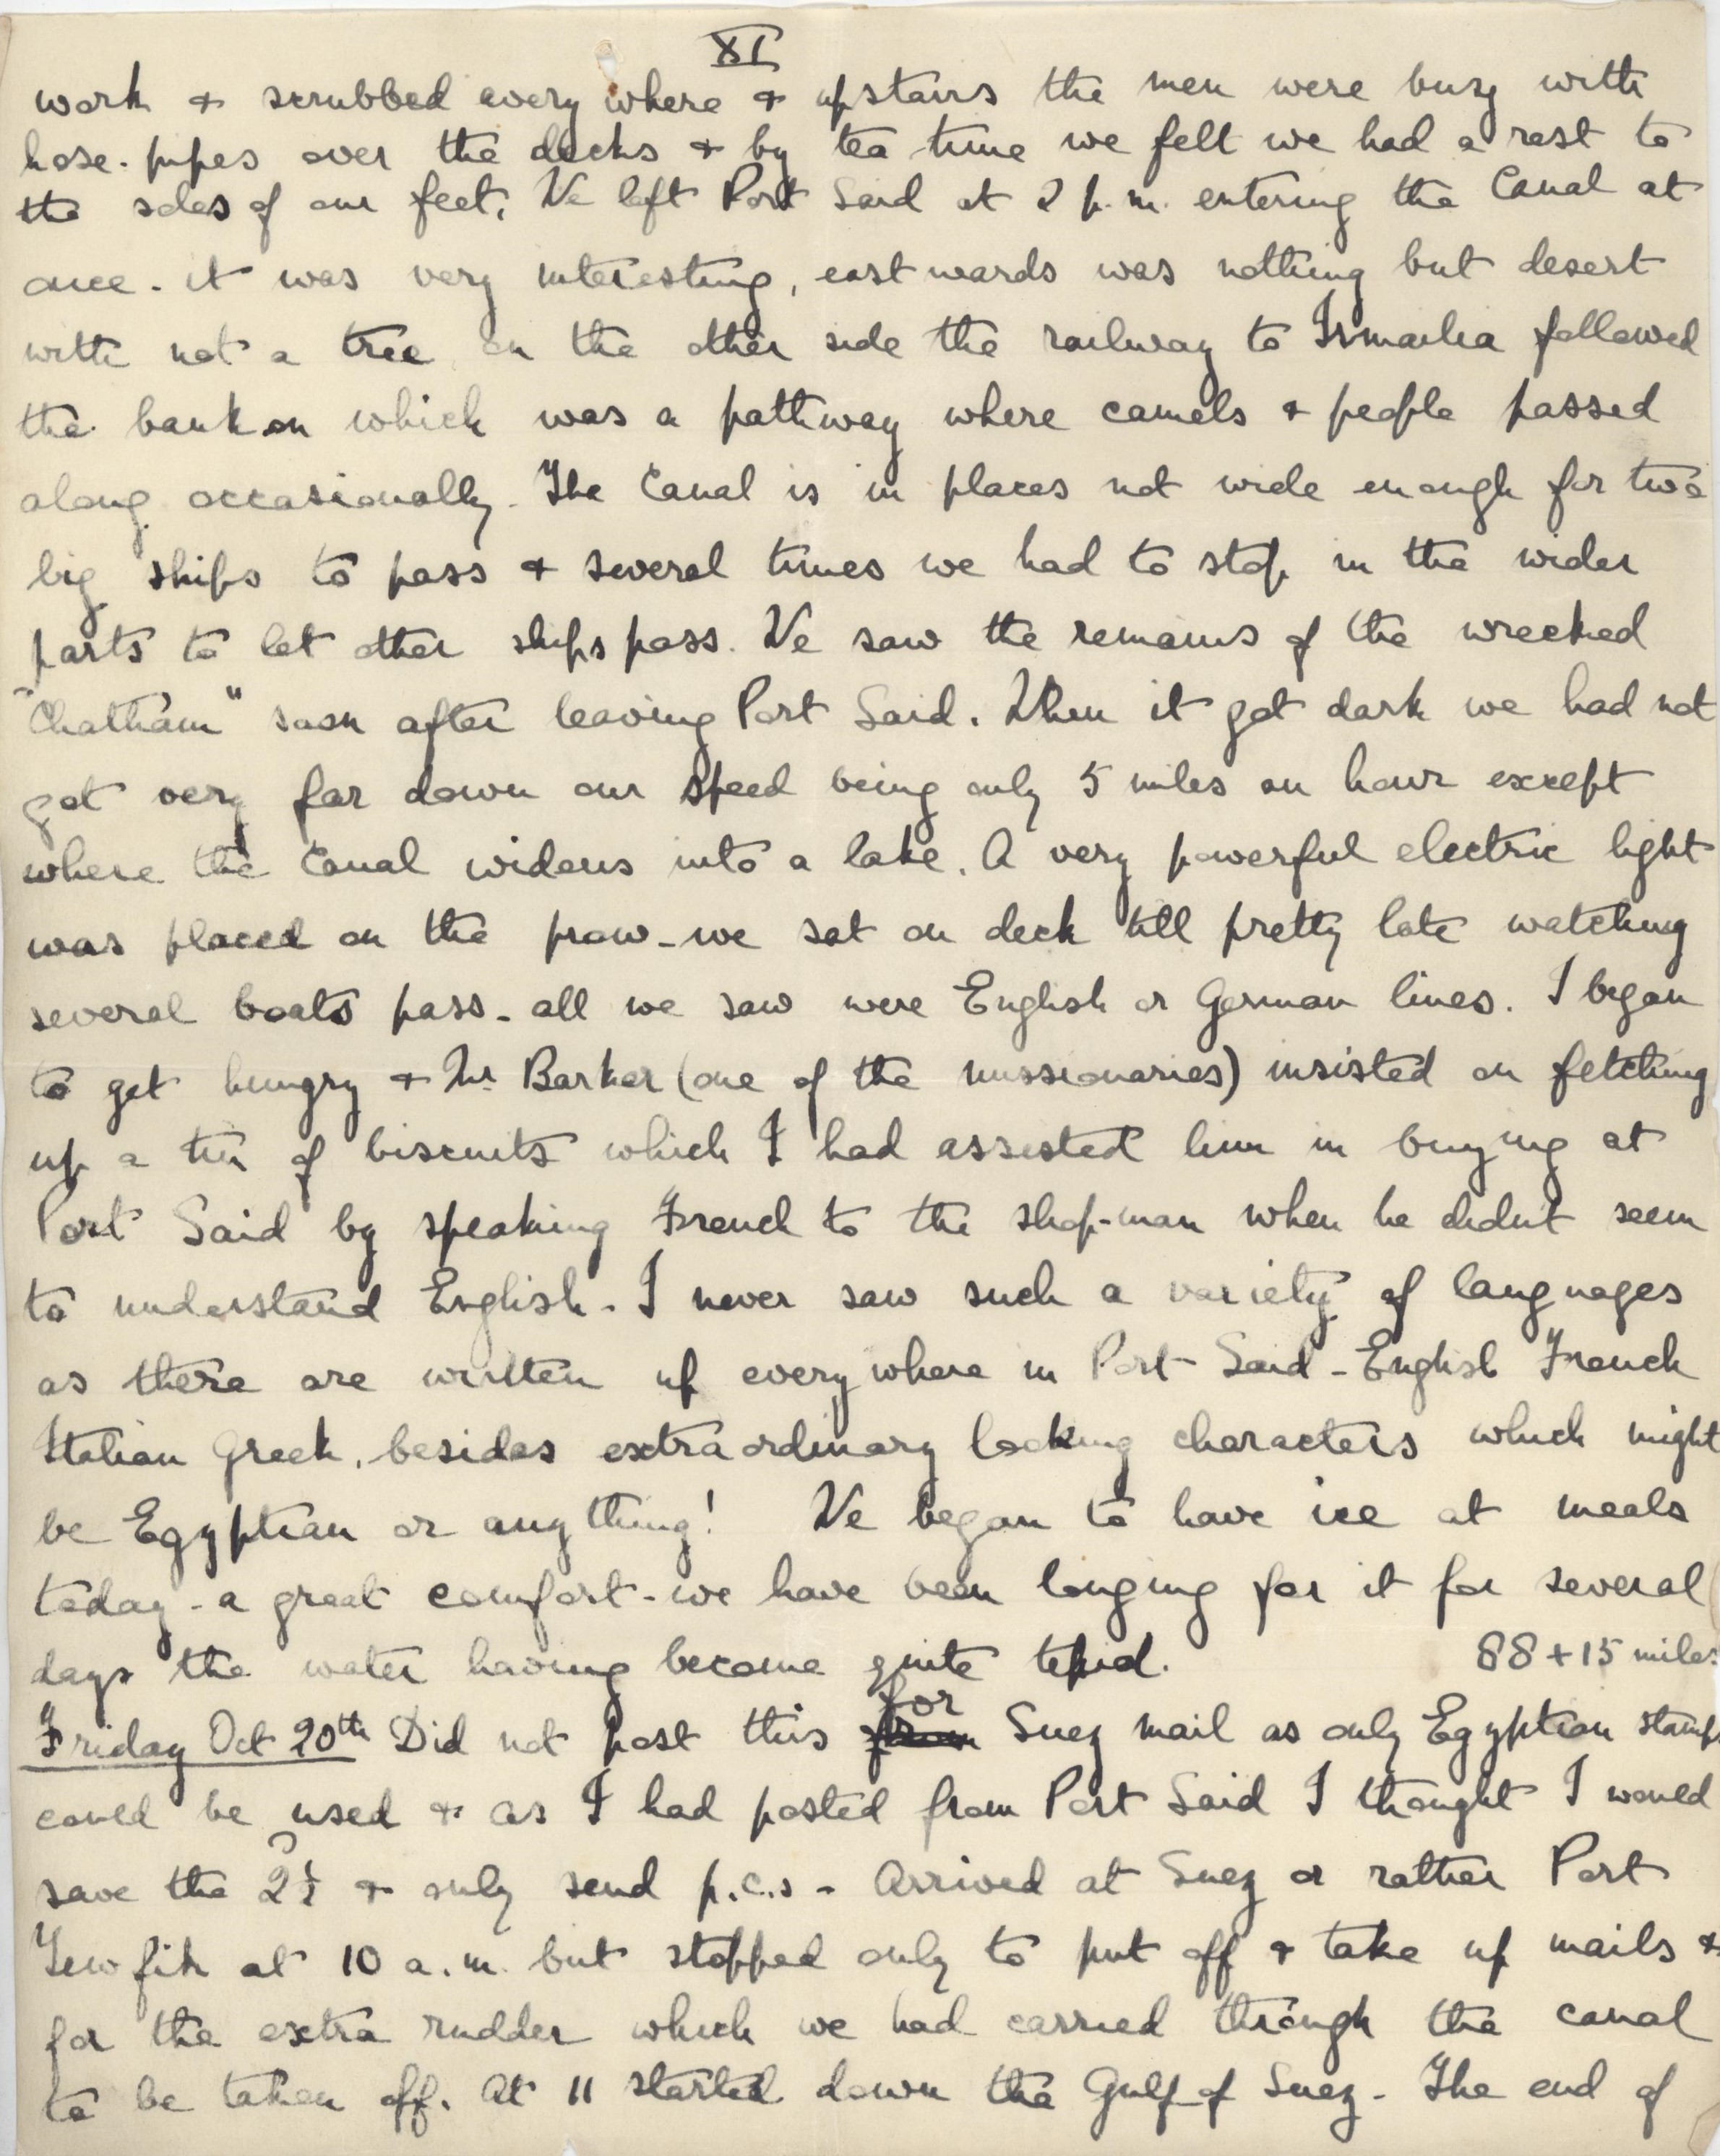 XI
work & scrubbed every where & upstairs the men were busy with
hose-pipes over the decks & by tea time we felt we had a rest to
the soles of our feet. We left Port Said at 2 p.m. entering the Canal at
once - it was very interesting, eastwards was nothing but desert
with not a tree on the other side the railway to Ismailia followed
the bank on which was a pathway where camels & people passed
along occasionally. The Canal is in places not wide enough for two
big ships to pass & several times we had to stop in the wider
parts to let other ships pass. We saw the remains of the wrecked
"Chatham" soon after leaving Port Said. When it got dark we had not
got very far down our speed being only 5 miles an hour except
where the Canal widens into a lake. A very powerful electric light
was placed on the prow - we sat on deck till pretty late watching
several boats pass - all we saw were English or German lines. I began
to get hungry & Mr Barker (one of the missionaries) insisted on fetching
up a tin of biscuits which I had assisted him in buying at
Port Said by speaking French to the shop-man when he didn't seem
to understand English - I never saw such a variety of languages
as there are written up everywhere in Port Said - English French
Italian Greek, besides extraordinary looking characters which might
be Egyptian or any thing! We began to have ice at meals
today - a great comfort - we have been longing for it for several
days the water having become quite tepid. 88 + 15 miles
Friday Oct 20th Did not post this from for Suez mail as only Egyptian stamps
could be used & as I had posted from Port Said I thought I would
save the 2½ & only send p.c.s - Arrived at Suez or rather Port
Tewfik at 10 a.m. but stopped only to put off & take up mails &
for the extra rudder which we had carried through the canal
to be taken off. At 11 started down the Gulf of Suez - The end of